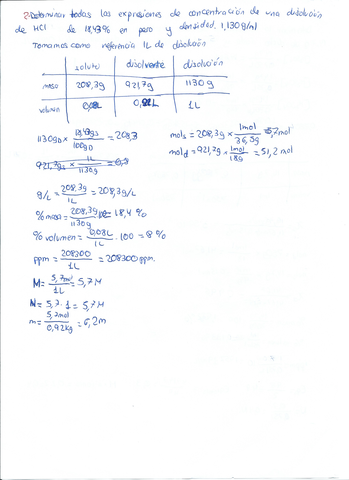 2. Determinar todas las expresiones de concentración de una disolución
de HCl de 18,43% en peso y densidad 1,130g/ml
Tomamos como referencia 1L de disolución
soluto disolvente disolución
masa 208,3g 921,7g 1130g
volumen 0,08L 1L
1130gD × 18,43gs/100gD = 208,3
mols = 208,3g × 1mol/36,5g = 5,7mol
921,7g × 1L/1130g =
mold = 921,7g × 1mol/18g = 51,2 mol
g/L = 208,3g/1L = 208,3g/L
% masa = 208,3g/1130g = 18,4 %
% volumen = 0,08L/1L · 100 = 8 %
ppm = 208300/1L = 208300ppm.
M = 5,7mol/1L = 5,7 M
N = 5,7 · 1 = 5,7 M
m = 5,7mol/0,92kg = 6,2m